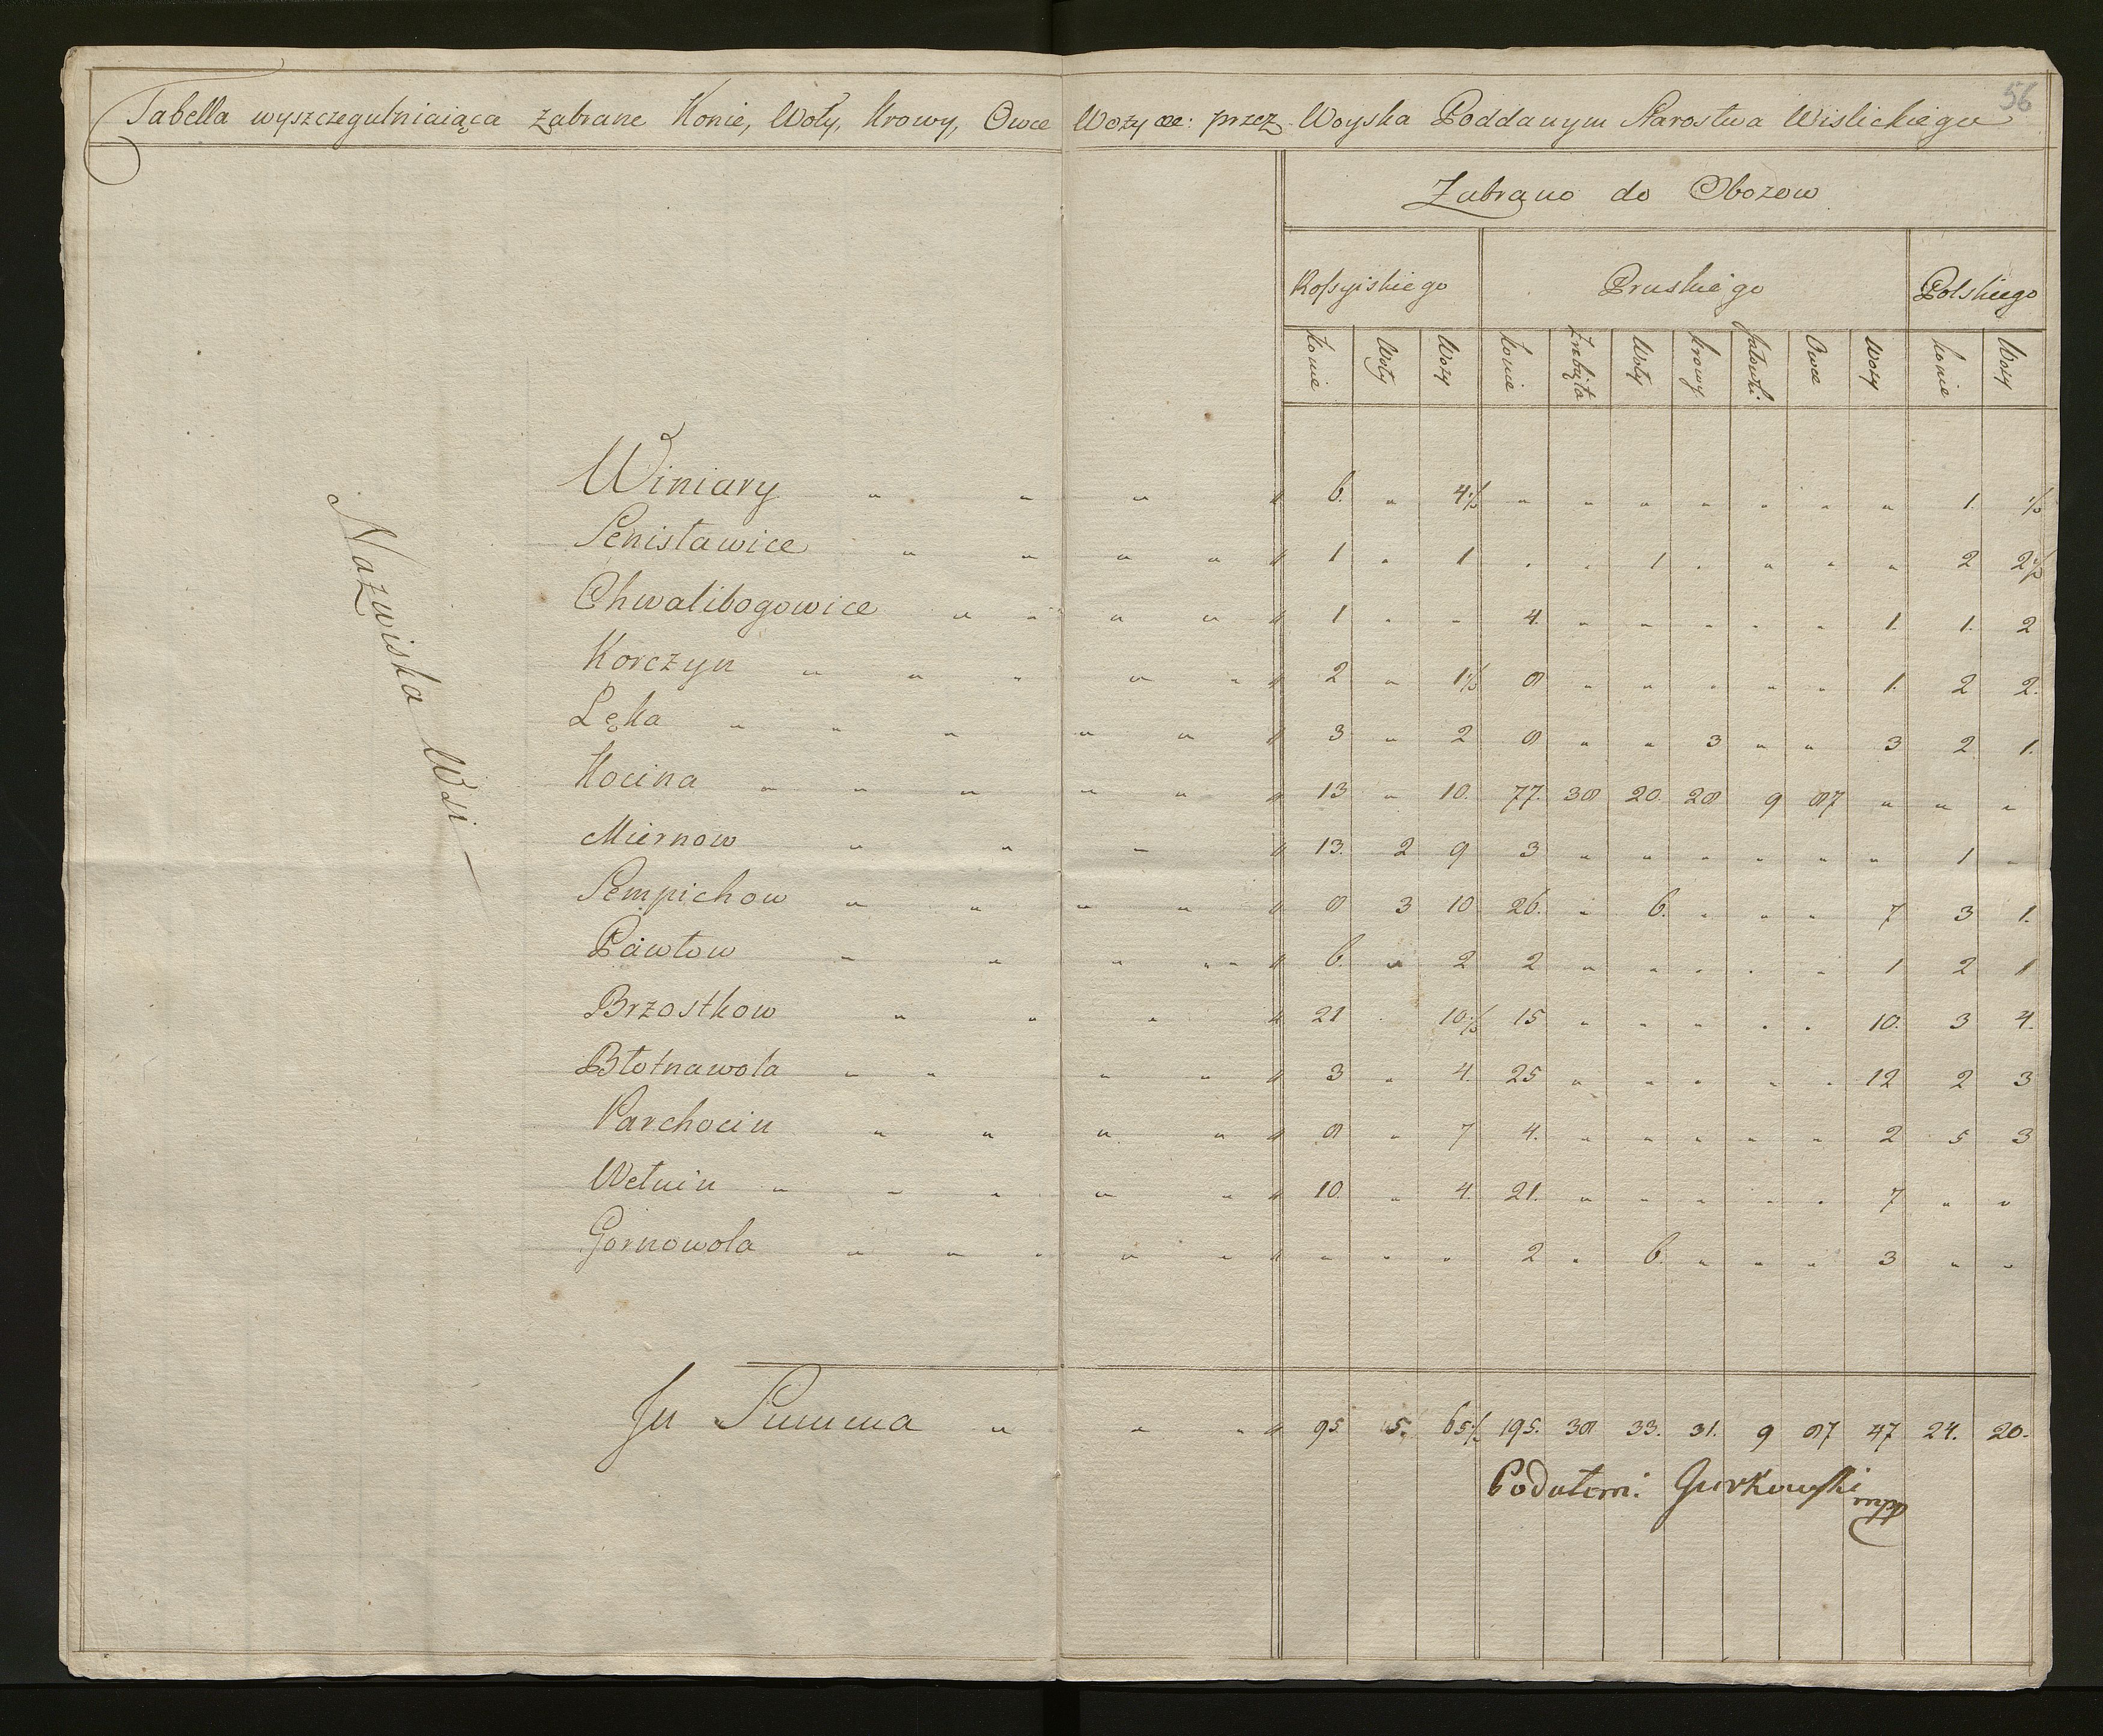 56
Tabella wyszczegulniaiąca zabrane Konie, Woły, Krowy, Owce Wozy &c: przez Woyska Poddanym Starostwa Wislickiego
Zabrano do Obozow
Rossyiskiego Pruskiego Polskiego
Konie Woły Wozy Konie Zrebięta Woły Krowy Jałowki Owce Wozy Konie Wozy
Nazwiska Wsi
Winiary " " " " 6. " 4½ " " " " " " " 1. ½
Senisławice " " " " " 1 " 1 " " 1 " " " " 2 2½
Chwalibogowice " " " " " 1 " " 4. " " " " " 1. 1. 2
Korczyn " " " " " " 2 " 1½ 8 " " " " " 1. 2 2.
Lęka " " " " " " 3 " 2 8 " " 3 " " 3 2 1.
Kocina " " " " " " 13 " 10. 77. 38 20. 28 9 87 " " "
Miernow " " " " 13. 2 9 3 " " " " " " 1 "
Sempichow " " " " " 8 3 10 26. " 6. " " " 7 3 1.
Pawłow " " " " " " 6. " 2 2 " " " " " 1 2 1
Brzostkow " " " " 21 " 10½ 15 " " " " " 10. 3 4.
Błotnawola " " " " " 3 " 4. 25 " " " " " 12 2 3
Parchocin " " " " " 8 " 7 4. " " " " " 2 5 3
Wełnin " " " " " " 10. " 4. 21. " " " " " 7 " "
Gornowola " " " " " " " " " 2 " 6. " " " 3 " "
In Summa " " " " 95. 5. 65½ 195. 38 33. 31. 9 87 47 24. 20.
Podatem: Gurkowski mpp